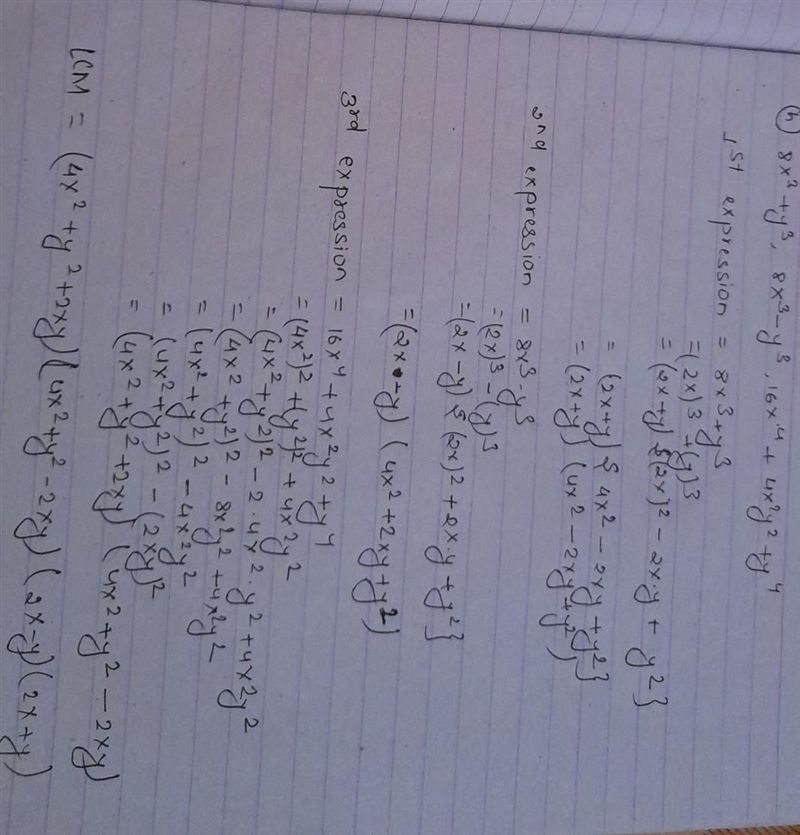 h) 8x³ + y³, 8x³ - y³, 16x⁴ + 4x²y² + y⁴
1st expression = 8x³ + y³
= (2x)³ + (y)³
= (2x+y) {(2x)² - 2x.y + y²}
= (2x+y) {4x² - 2xy + y²}
= (2x+y) (4x² - 2xy + y²)
2nd expression = 8x³ - y³
= (2x)³ - (y)³
= (2x-y) {(2x)² + 2x.y + y²}
= (2x-y) (4x² + 2xy + y²)
3rd expression = 16x⁴ + 4x²y² + y⁴
= (4x²)² + (y²)² + 4x²y²
= (4x² + y²)² - 2.4x².y² + 4x²y²
= (4x² + y²)² - 8x²y² + 4x²y²
= (4x² + y²)² - 4x²y²
= (4x² + y²)² - (2xy)²
= (4x² + y² + 2xy) (4x² + y² - 2xy)
LCM = (4x² + y² + 2xy) (4x² + y² - 2xy) (2x-y) (2x+y)